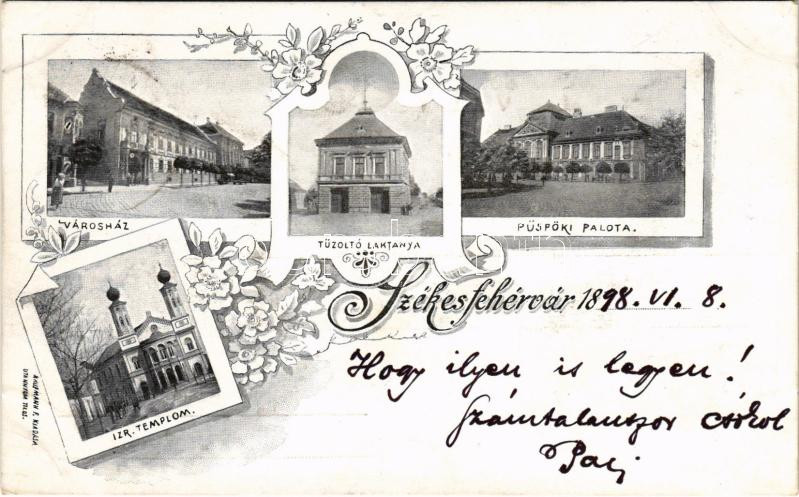 VÁROSHÁZ
TŰZOLTÓ LAKTANYA
PÜSPÖKI PALOTA.
IZR. TEMPLOM.
Székesfehérvár 1898. VI. 8.
Hogy ilyen is legyen!
Számtalanszor csókol